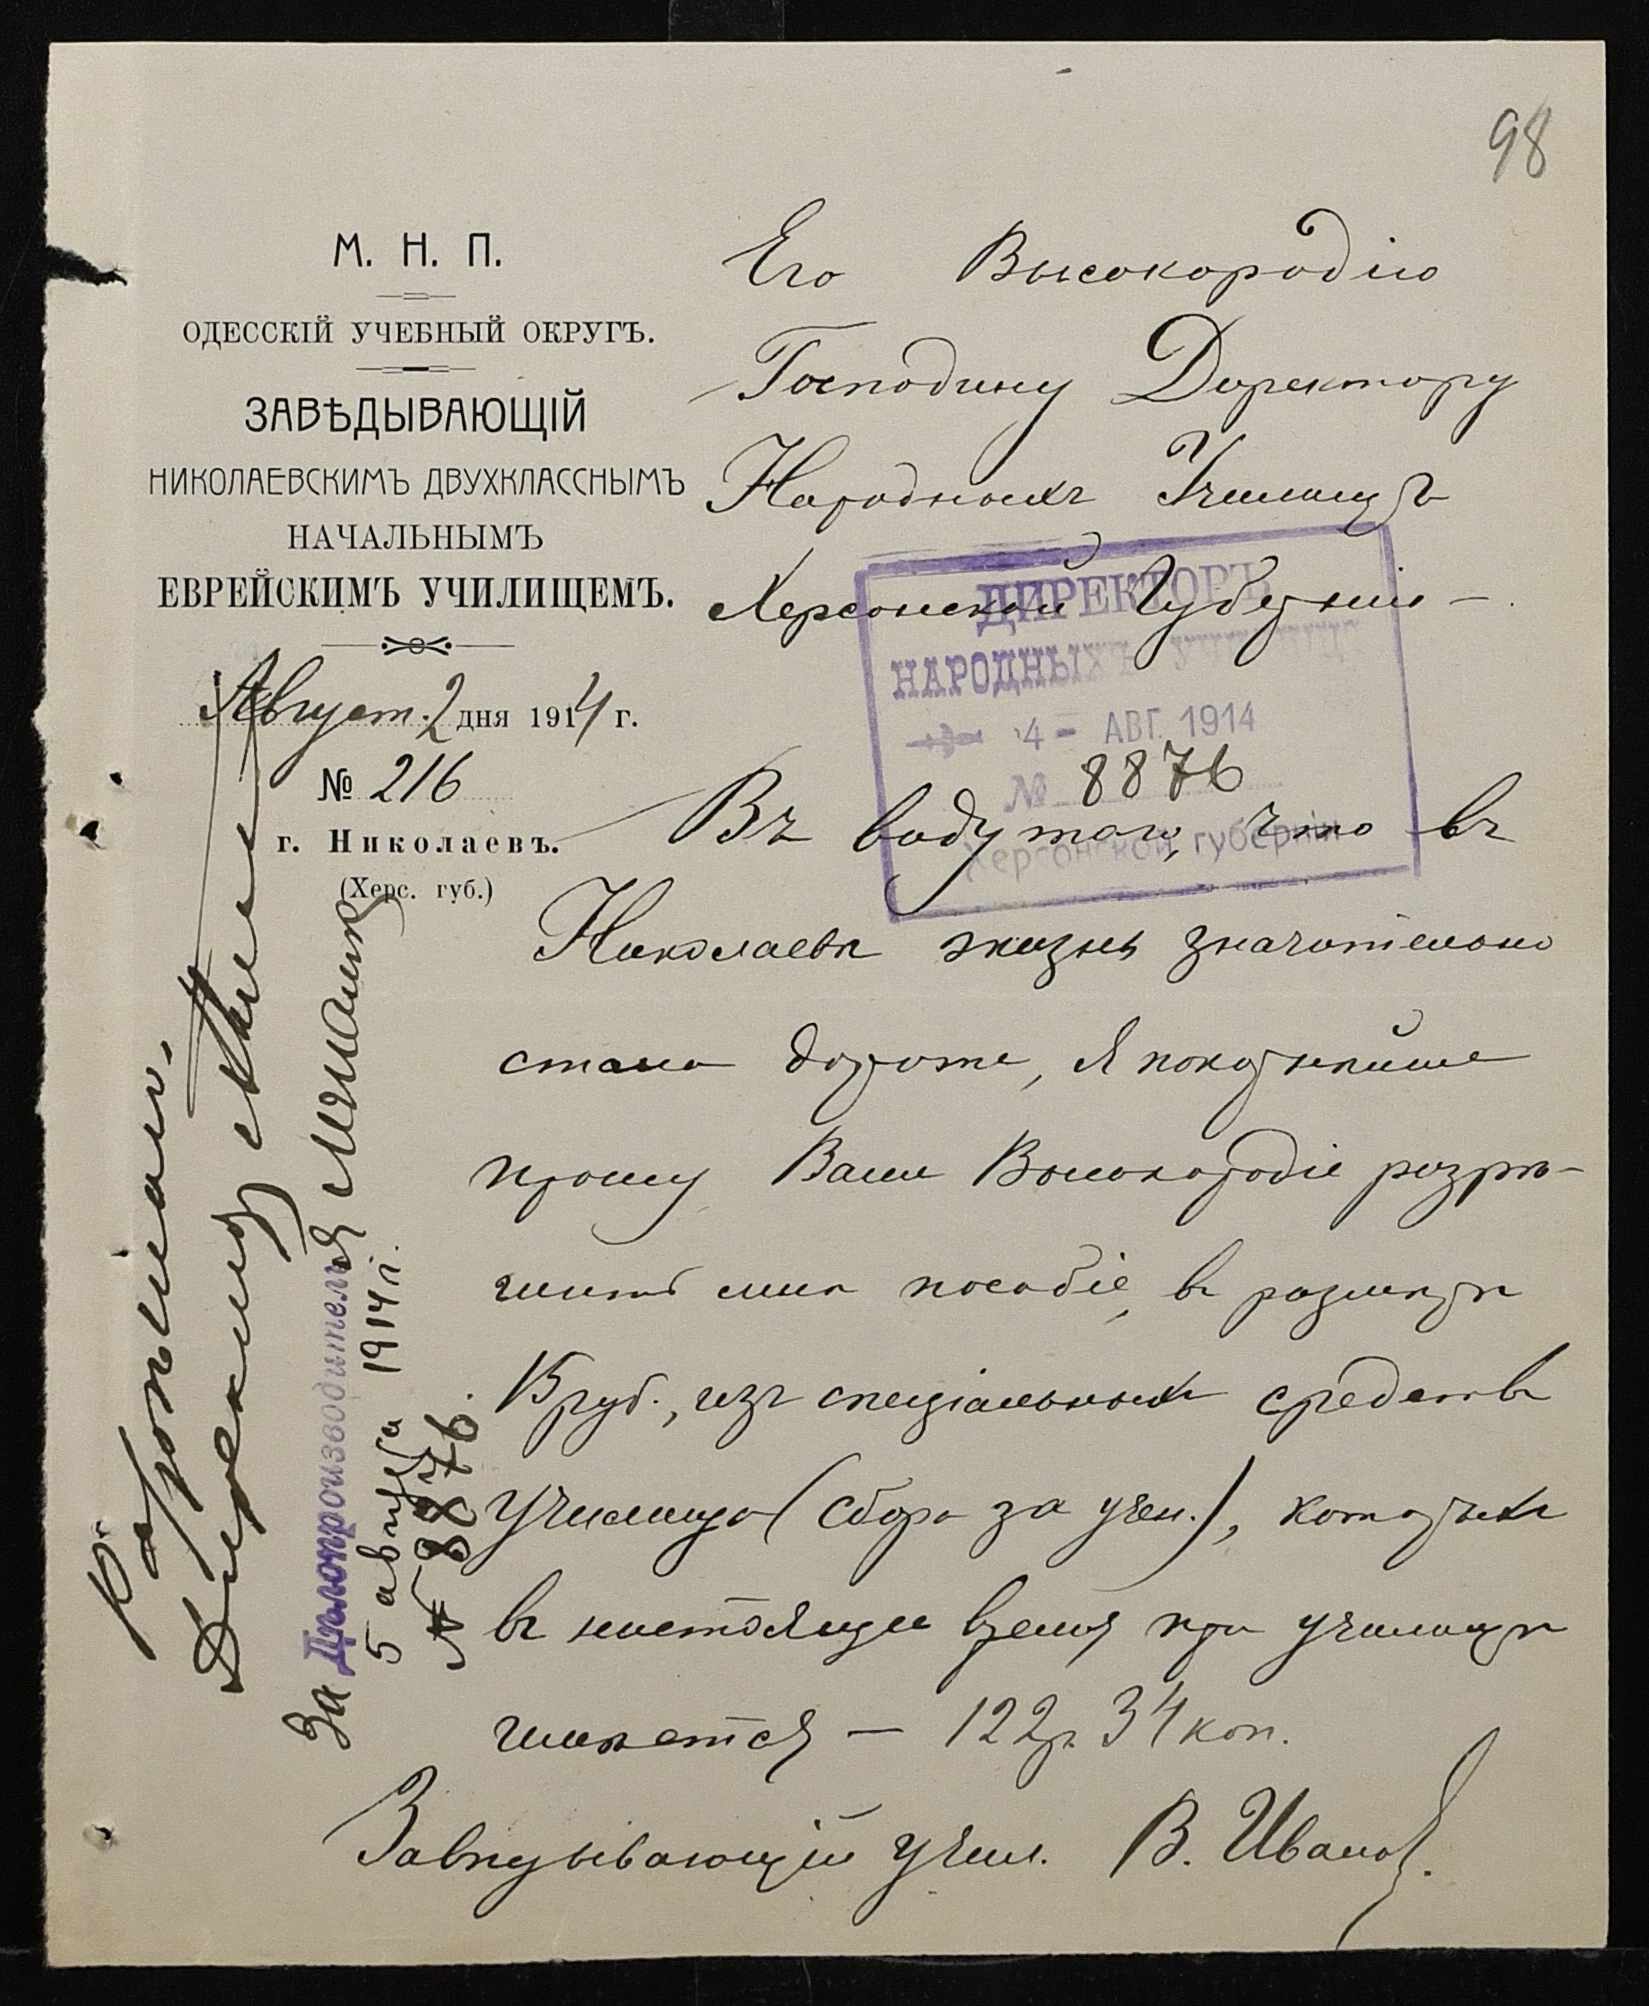 98
М. Н. П.
ОДЕССКІЙ УЧЕБНЫЙ ОКРУГЪ.
ЗАВѢДЫВАЮЩІЙ
НИКОЛАЕВСКИМЪ ДВУХКЛАССНЫМЪ
НАЧАЛЬНЫМЪ
ЕВРЕЙСКИМЪ УЧИЛИЩЕМЪ.
Август. 2 дня 1914 г.
№ 216
г. Николаевъ.
(Херс. губ.)
Его Высокородію
Господину Директору
Народныхъ Училищъ
Херсонской Губерніи –
ДИРЕКТОРЪ
НАРОДНЫХЪ УЧИЛИЩЪ
4 - АВГ. 1914
№ 8876
Херсонской губерніи
Въ виду того, что въ
Николаевѣ жизнь значительно
стала дороже, я покорнѣйше
прошу Ваше Высокородіе разрѣ-
шить мнѣ пособіе, въ размѣрѣ
руб., изъ спеціальныхъ средствъ
училища (сбора за учен.), которыхъ
въ настоящее время при училищѣ
имѣется — 122 р. 34 коп.
Завѣдывающій учил. В. Ивановъ.
Разрѣшаю.
Директор
За Дѣлопроизводителя
5 августа 1914 г.
№ 8876.